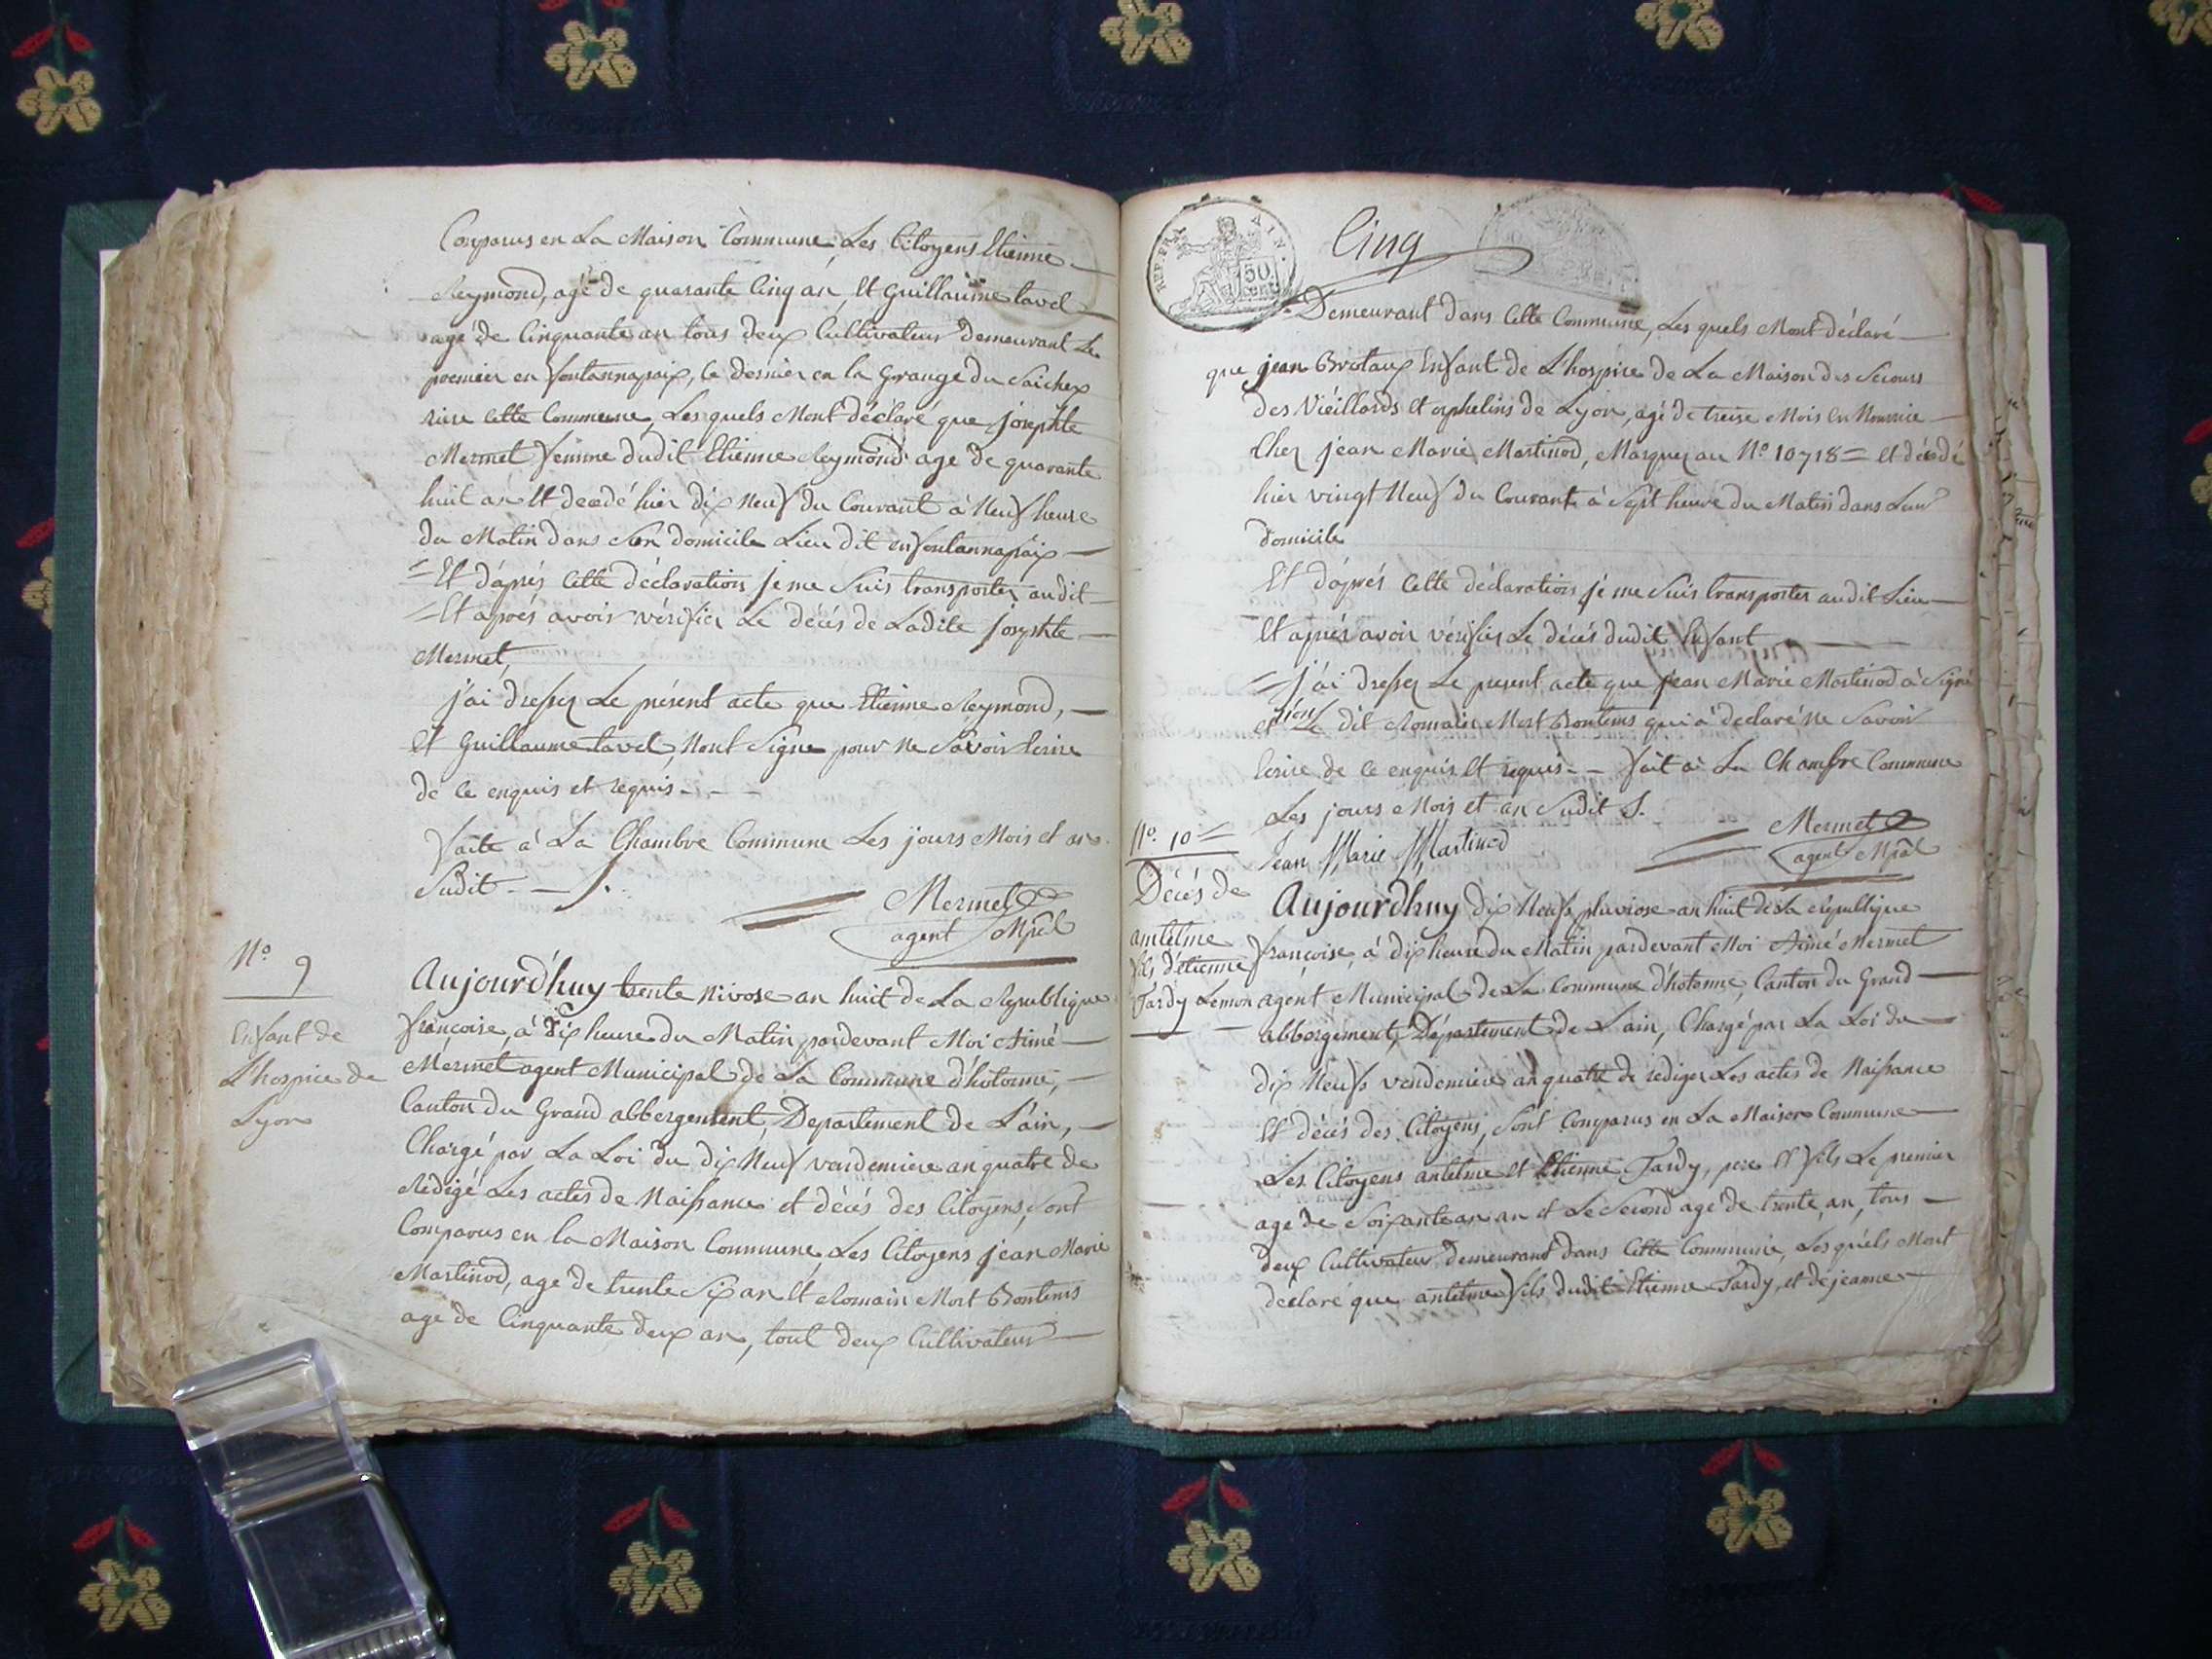 Comparus en La Maison Commune, Les Citoyens Etienne
Reymond, agé de quarante Cinq an, Et Guillaume tavel
agé de Cinquante an tous deux Cultivateur demeurant Le
premier en fontannapaix, le dernier en la Grange du
rière cette Commune, Les quels Mont déclaré que josephte
Mermet femme dudit Etienne Reymond age de quarante
huit an Et decedé hier dix Neuf du Courant à Neuf heure
du Matin dans Son domicile Lieu dit en fontannapaix
= Et d'après cette déclaration je me Suis transporter audit
= Et après avoir vérifier Le décés de Ladite josephte
Mermet,
j'ai dresser Le présent acte que Etienne Reymond,
Et Guillaume tavel, Nont Signe pour Ne Savoir Ecrire
de ce enquis et requis - - -
faite à La Chambre Commune Les jours Mois et an
Sudit - S.
Mermet
agent Mpal
No 9
Enfant de
L'hospice de
Lyon
Aujourd'huy trente Nivose an huit de La Republique
françoise, à dix heure du Matin pardevant Moi Aimé
Mermet agent Municipal de La Commune d'hotonne,
Canton du Grand abbergement, Departement de L'ain,
Chargé par La Loi du dix Neuf vendemiere an quatre de
Redigé Les actes de Naissance et décés des Citoyens, Sont
Comparus en la Maison Commune, Les Citoyens jean Marie
Martinod, age de trente Six an Et Romain Mort Bontems
age de Cinquante deux an, tout deux Cultivateur
REP. FRA
50
cent
Cinq
Demeurant dans cette Commune, Les quels Mont déclaré
que jean Brotaux Enfant de L'hospice de La Maison des Secours
des Vieillards et orphelins de Lyon, agé de treise Mois en Nourrice
Chez jean Marie Martinod, Marquez au No 10718 = Et décédé
hier vingt Neuf du Courant à Sept heure du Matin dans Leur
domicile
Et d'après cette déclaration je me Suis transporter audit Lieu
Et après avoir vérifier Le décés dudit Enfant
= j'ai dresser Le present acte que jean Marie Martinod à Signé
et Non Le dit Romain Mort Bontems qui à declaré Ne Savoir
Ecrire de ce enquis Et requis - - fait à La Chambre Commune
Les jours Mois et an Sudit S.
Jean Marie Martinod
Mermet
agent Mpal
No 10 =
Décés de
antelme
fils d'etienne
Tardy Lemon
Aujourdhuy dix Neuf pluviose an huit de la Republique
françoise, à dix heure du Matin pardevant Moi Aimé Mermet
agent Municipal de La Commune d'hotonne, Canton du Grand
abbergement, Département de L'ain, Chargé par La Loi du
dix Neuf vendemiere an quatre de rediger Les actes de Naissance
Et décés des Citoyens, Sont Comparus en La Maison Commune
Les Citoyens antelme et Etienne Tardy, pere Et fils Le premier
age de Soixante an et Le Second age de trente an, tous
deux Cultivateur demeurant dans Cette Commune, Les quels Mont
declaré que antelme fils dudit Etienne Tardy, et de jeanne